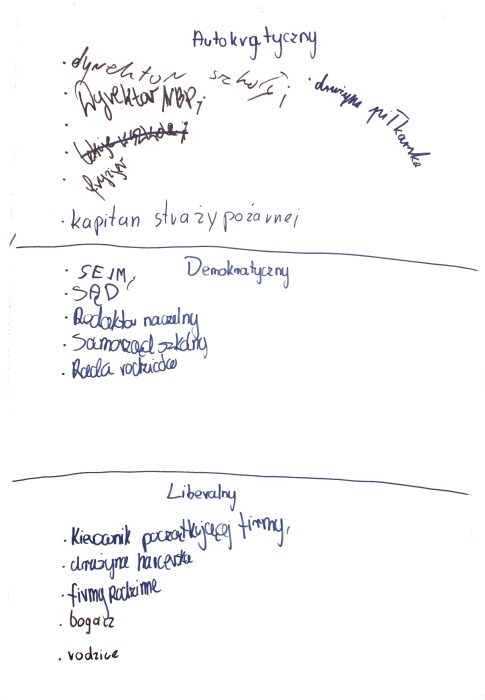 Autokratyczny
· dyrektor szkoły
· drużyna piłkarska
· Dyrektor NBP,
·
·
· fryzjer
· kapitan straży pożarnej
Demokratyczny
· SEJM,
· SĄD
· Redaktor naczelny
· Samorząd szkolny
· Rada rodziców
Liberalny
· Kierownik początkującej firmy,
· drużyna harcerska
· firmy Rodzinne
· bogacz
· rodzice